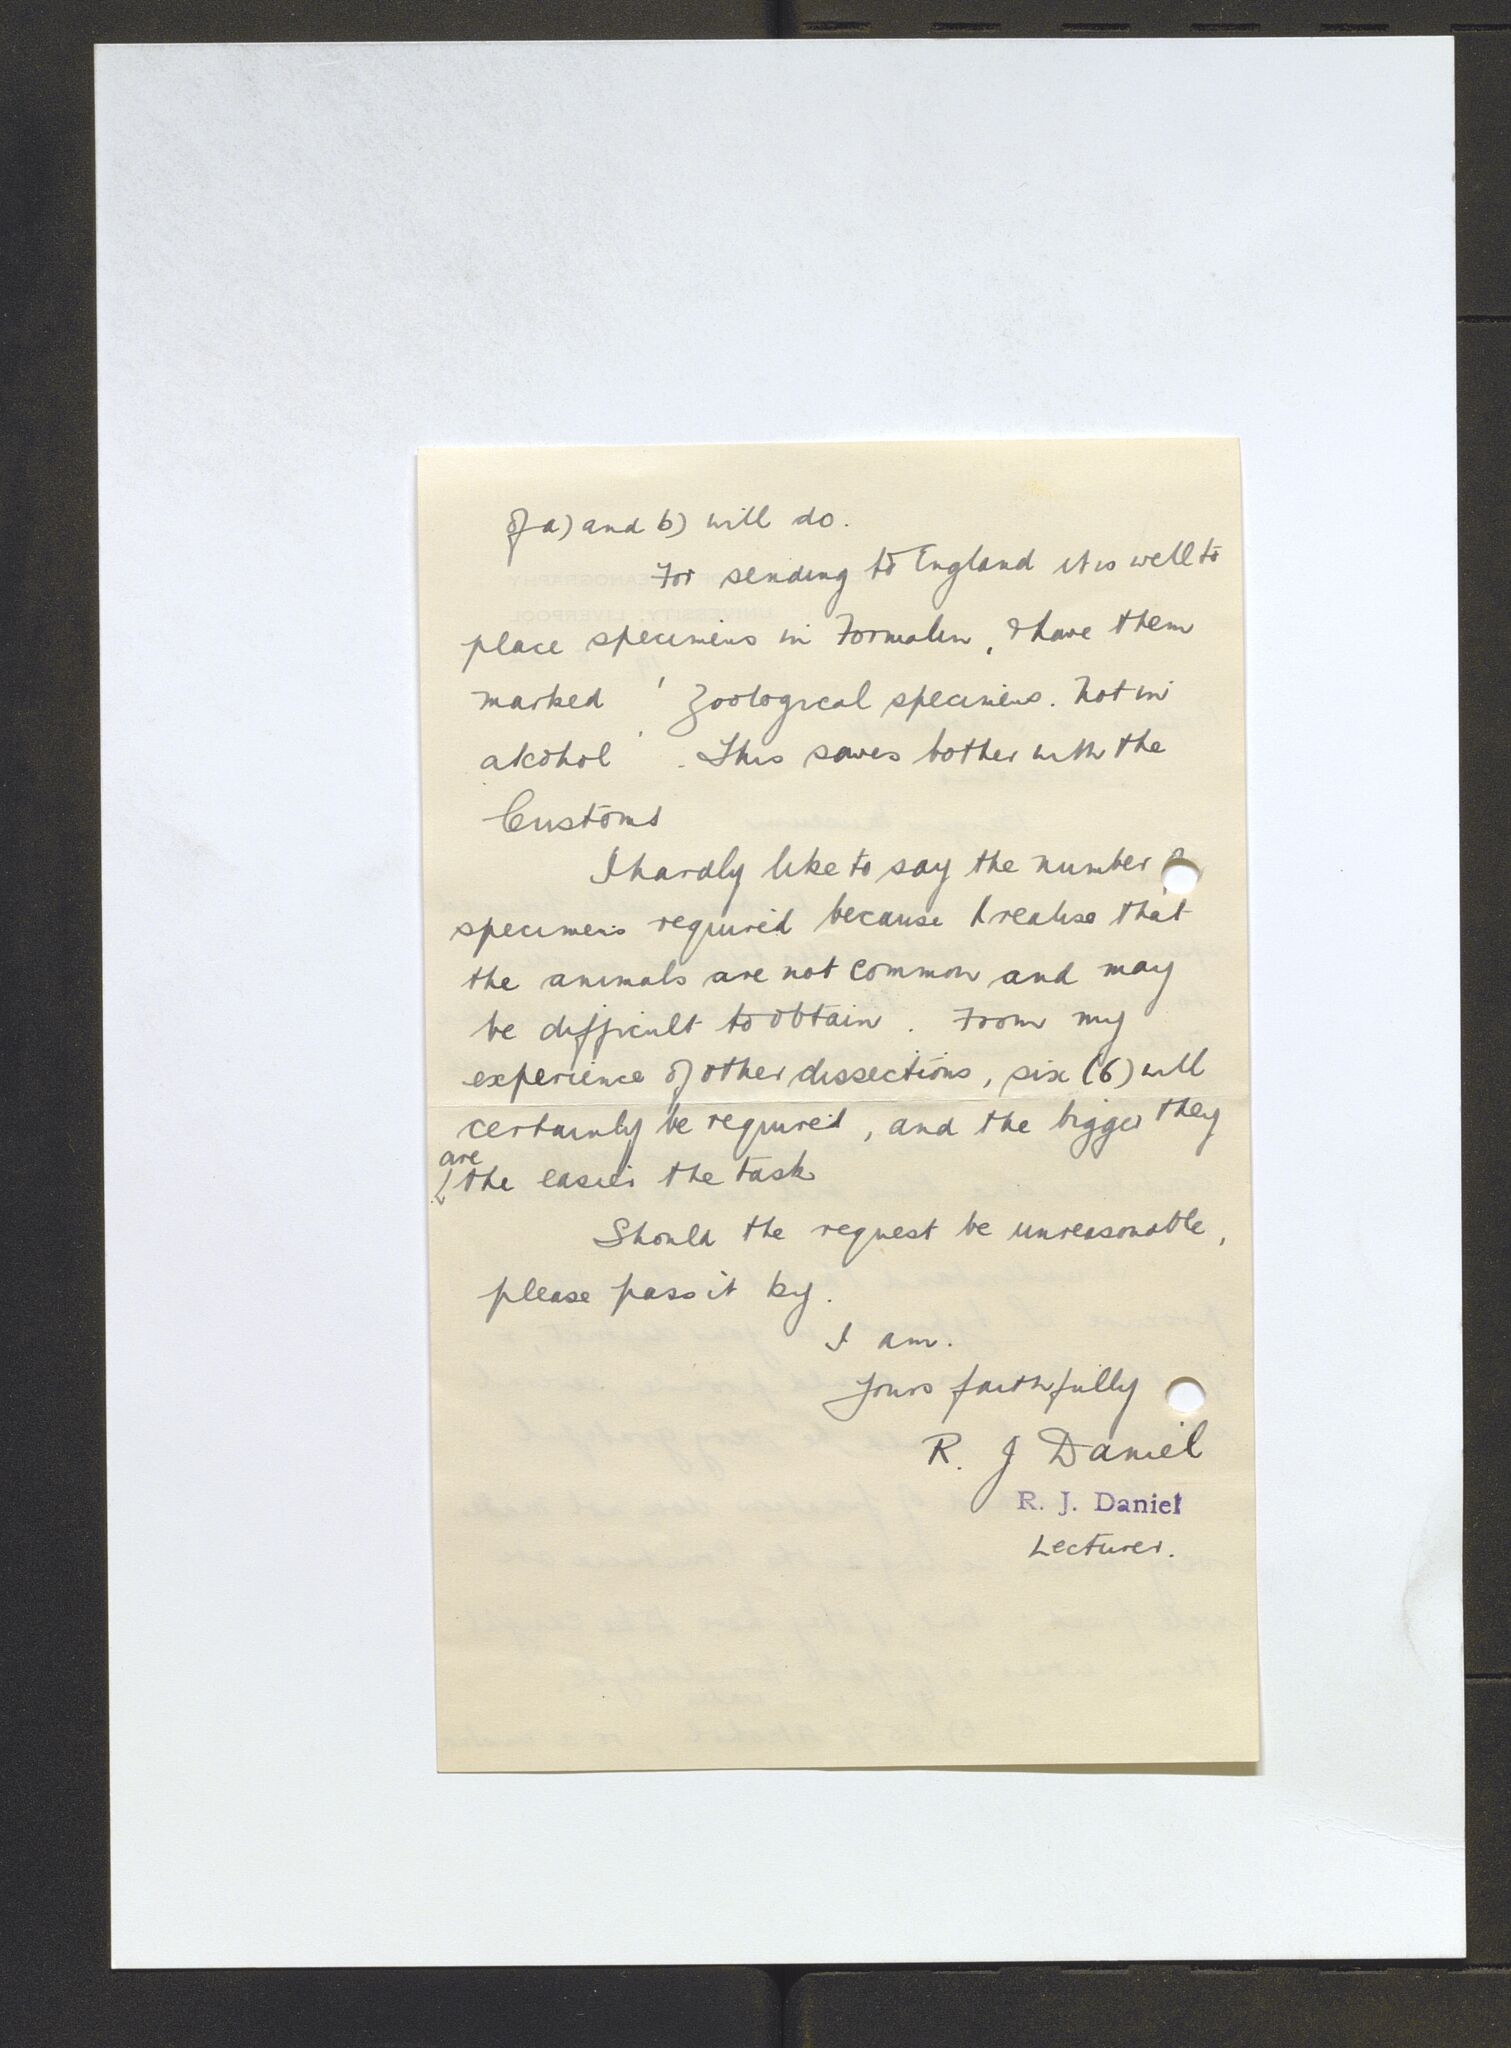 of a) and b) will do.
For sending to England it is well to
place specimens in Formalin, & have them
marked 'Zoological specimens. Not in
alcohol'. This saves bother with the
Customs
I hardly like to say the number of
specimens required because I realise that
the animals are not common and may
be difficult to obtain. From my
experience of other dissections, six (6) will
certainly be required, and the bigger they
are the easier the task
Should the request be unreasonable,
please pass it by.
I am.
Yours faithfully
R. J Daniel
R. J. Daniel
Lecturer.